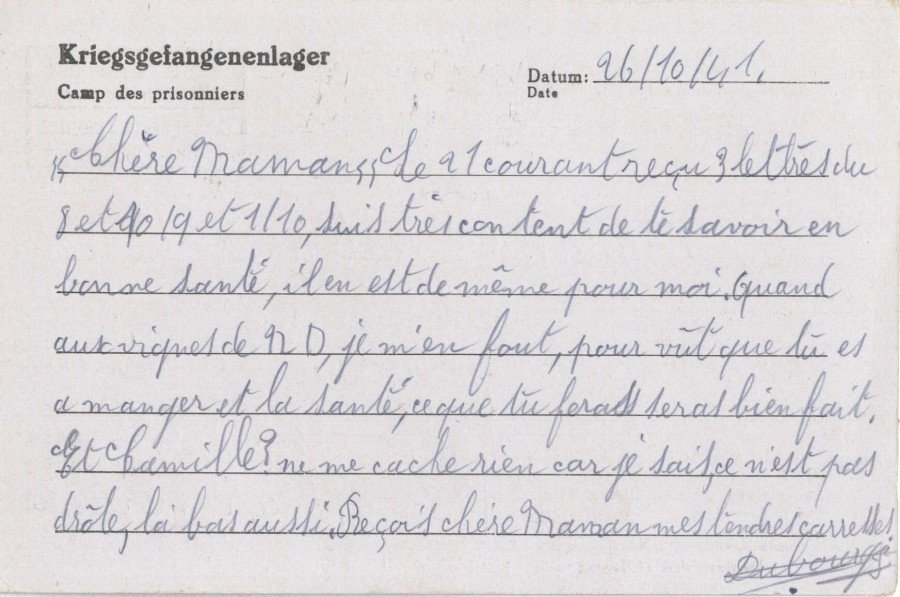 Kriegsgefangenenlager
Camp des prisonniers
Datum: 26/10/41.
Date
"Chère Maman,, Le 21 courant reçu 3 lettres du
8 et 10/9 et 1/10, suis très content de te savoir en
bonne santé, il en est de même pour moi. Quand
aux vignes de N D, je m'en fout, pour vût que tu es
a manger et la santé, ce que tu feras seras bien fait.
Et Camille? ne me cache rien car je sais, ce n'est pas
drôle, là bas aussi. Reçois chère Maman mes tendres carresses
Dubourg